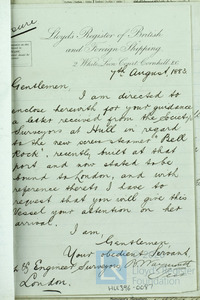 Lloyd's Register of British
and Foreign Shipping
2 White Lion Court, Cornhill, E.C.
7th August 1883
Gentlemen,
I am directed to
enclose herewith for your guidance
a letter received from the Society's
Surveyors at Hull in regard
to the new screw steamer "Bell
Rock", recently built at that
port and now stated to be
bound to London, and with
reference thereto I have to
request that you will give this
vessel your attention on her
arrival.
I am,
Gentlemen,
Your obedient Servant,
Engineer Surveyors
London.
Foundation